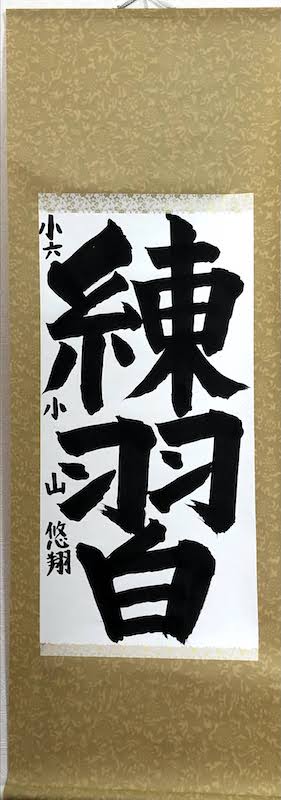 練習
小六 小山悠翔